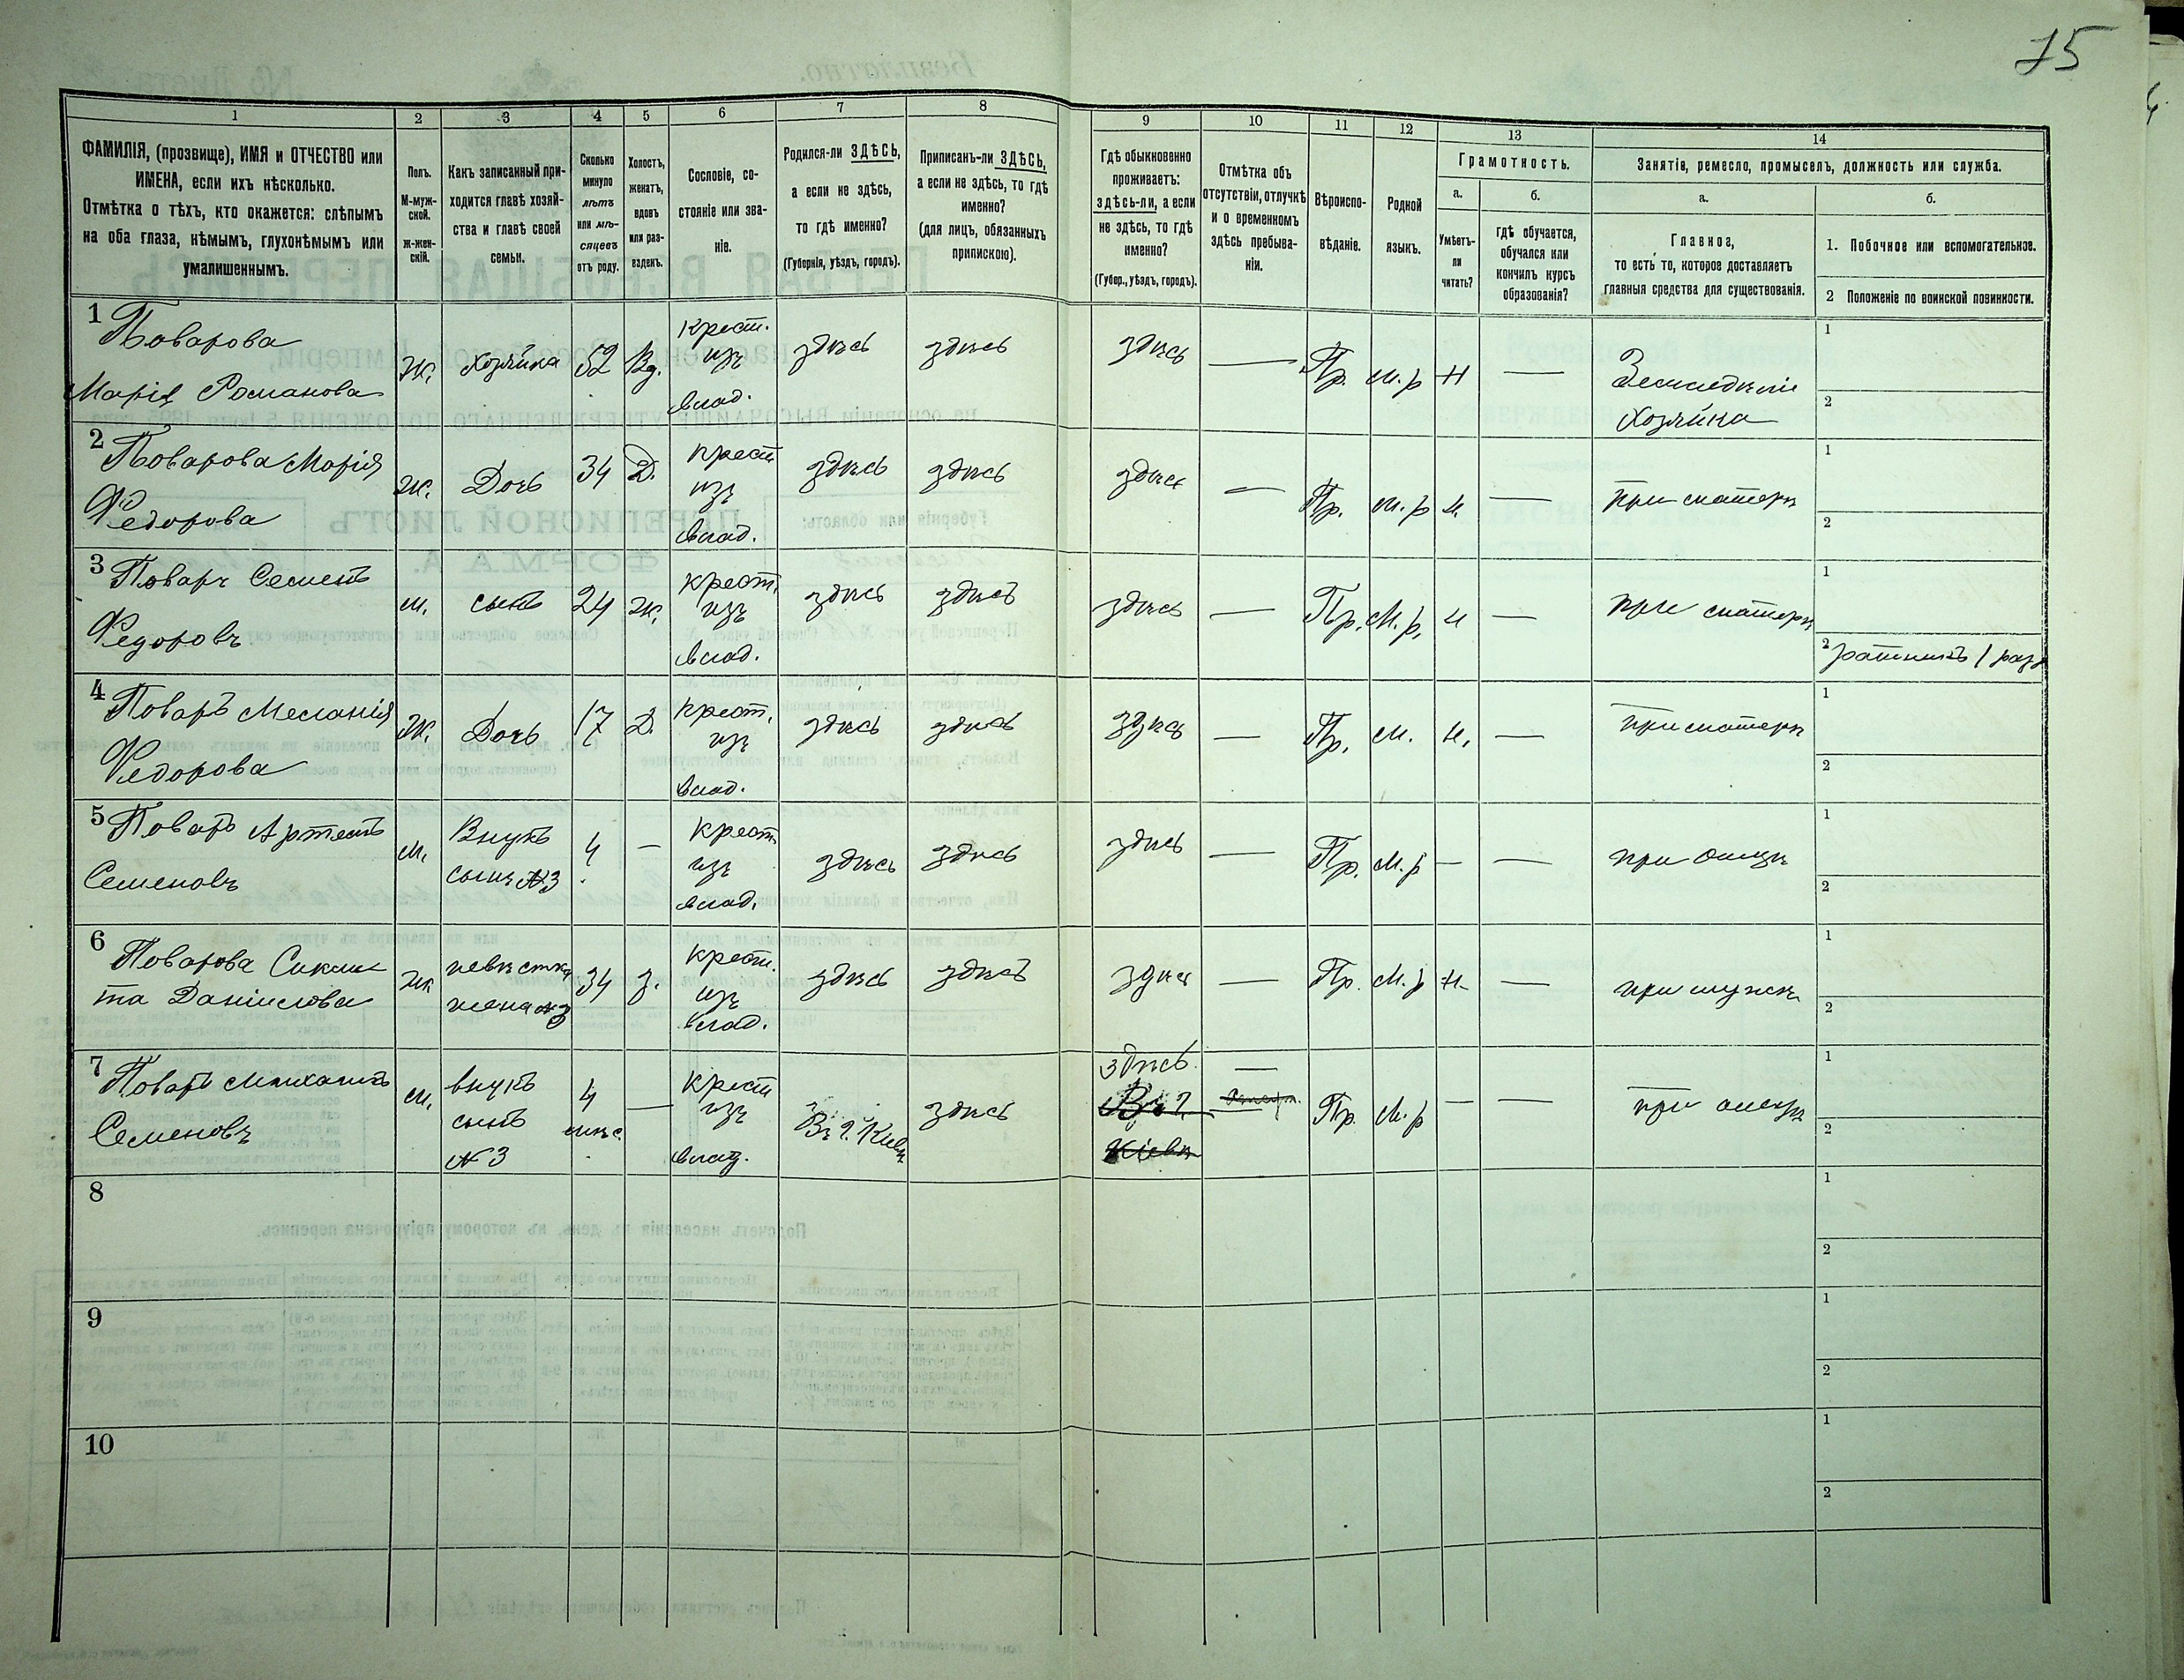 75
1 2 3 4 5 6 7 8 9 10 11 12 13 14
ФАМИЛІЯ, (прозвище), ИМЯ и ОТЧЕСТВО или
ИМЕНА, если ихъ нѣсколько.
Отмѣтка о тѣхъ, кто окажется: слѣпымъ
на оба глаза, нѣмымъ, глухонѣмымъ или
умалишеннымъ.
Полъ.
М-муж-
ской.
ж-жен-
скій.
Какъ записанный при-
ходится главѣ хозяй-
ства и главѣ своей
семьи.
Сколько
минуло
лѣтъ
или мѣ-
сяцевъ
отъ роду.
Холостъ,
женатъ,
вдовъ
или раз-
веденъ.
Сословіе, со-
стояніе или зва-
ніе.
Родился-ли ЗДѢСЬ,
а если не здѣсь,
то гдѣ именно?
(Губернія, уѣздъ, городъ).
Приписанъ-ли ЗДѢСЬ,
а если не здѣсь, то гдѣ
именно?
(для лицъ, обязанныхъ
припискою).
Гдѣ обыкновенно
проживаетъ:
здѣсь-ли, а если
не здѣсь, то гдѣ
именно?
(Губер., уѣздъ, городъ).
Отмѣтка объ
отсутствіи, отлучкѣ
и о временномъ
здѣсь пребыва-
ніи.
Вѣроиспо-
вѣданіе.
Родной
языкъ.
Грамотность.
а.
Умѣетъ-
ли
читать?
б.
гдѣ обучается,
обучался или
кончилъ курсъ
образованія?
Занятіе, ремесло, промыселъ, должность или служба.
а.
Главное,
то есть то, которое доставляетъ
главныя средства для существованія.
б.
1. Побочное или вспомогательное.
2 Положеніе по воинской повинности.
1 Поварова
Марія Романова
ж.
Хозяйка
52
Вд.
Крест.
изъ
влад.
здѣсь
здѣсь
здѣсь
—
Пр.
М. р
Н
—
Земледѣліе
хозяйка
1
2
2 Поварова Марія
Федорова
ж.
Дочь
34
Д.
Крест
изъ
влад.
здѣсь
здѣсь
здѣсь
—
Пр.
М. р
Н.
—
При матери
1
2
3 Поваръ Семенъ
Федоровъ
м.
сынъ
24
ж.
Крест.
изъ
влад.
здѣсь
здѣсь
здѣсь
—
Пр.
М. р.
Н
—
при матери
1
2 ратникъ 1 разр
4 Поваръ Меланія
Федорова
ж.
Дочь
17
Д.
Крест.
изъ
влад.
здѣсь
здѣсь
здѣсь
—
Пр.
М.
Н.
—
При матери
1
2
5 Поваръ Артемъ
Семеновъ
м.
Внукъ
сынъ №3
4
—
Крест
изъ
влад.
здѣсь
здѣсь
здѣсь
—
Пр.
М. р
—
—
при отцѣ
1
2
6 Поварова
та Даніилова
ж
невѣстка
жена №3
34
з.
Крест.
изъ
влад.
здѣсь
здѣсь
здѣсь
—
Пр.
М. р
Н.
—
при мужѣ
1
2
7 Поваръ Михаилъ
Семеновъ
м.
внукъ
сынъ
№3
4
мѣс.
—
Крест
изъ
влад.
Въ г. Киевѣ
здѣсь
здѣсь.
Въ г.
Кіевѣ
—
Пр.
М. р
—
—
при отцѣ
1
2
8
1
2
9
1
2
10
1
2